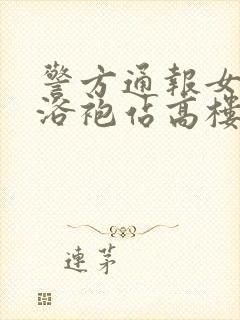 警方通報女
浴袍佔高樓
連茅